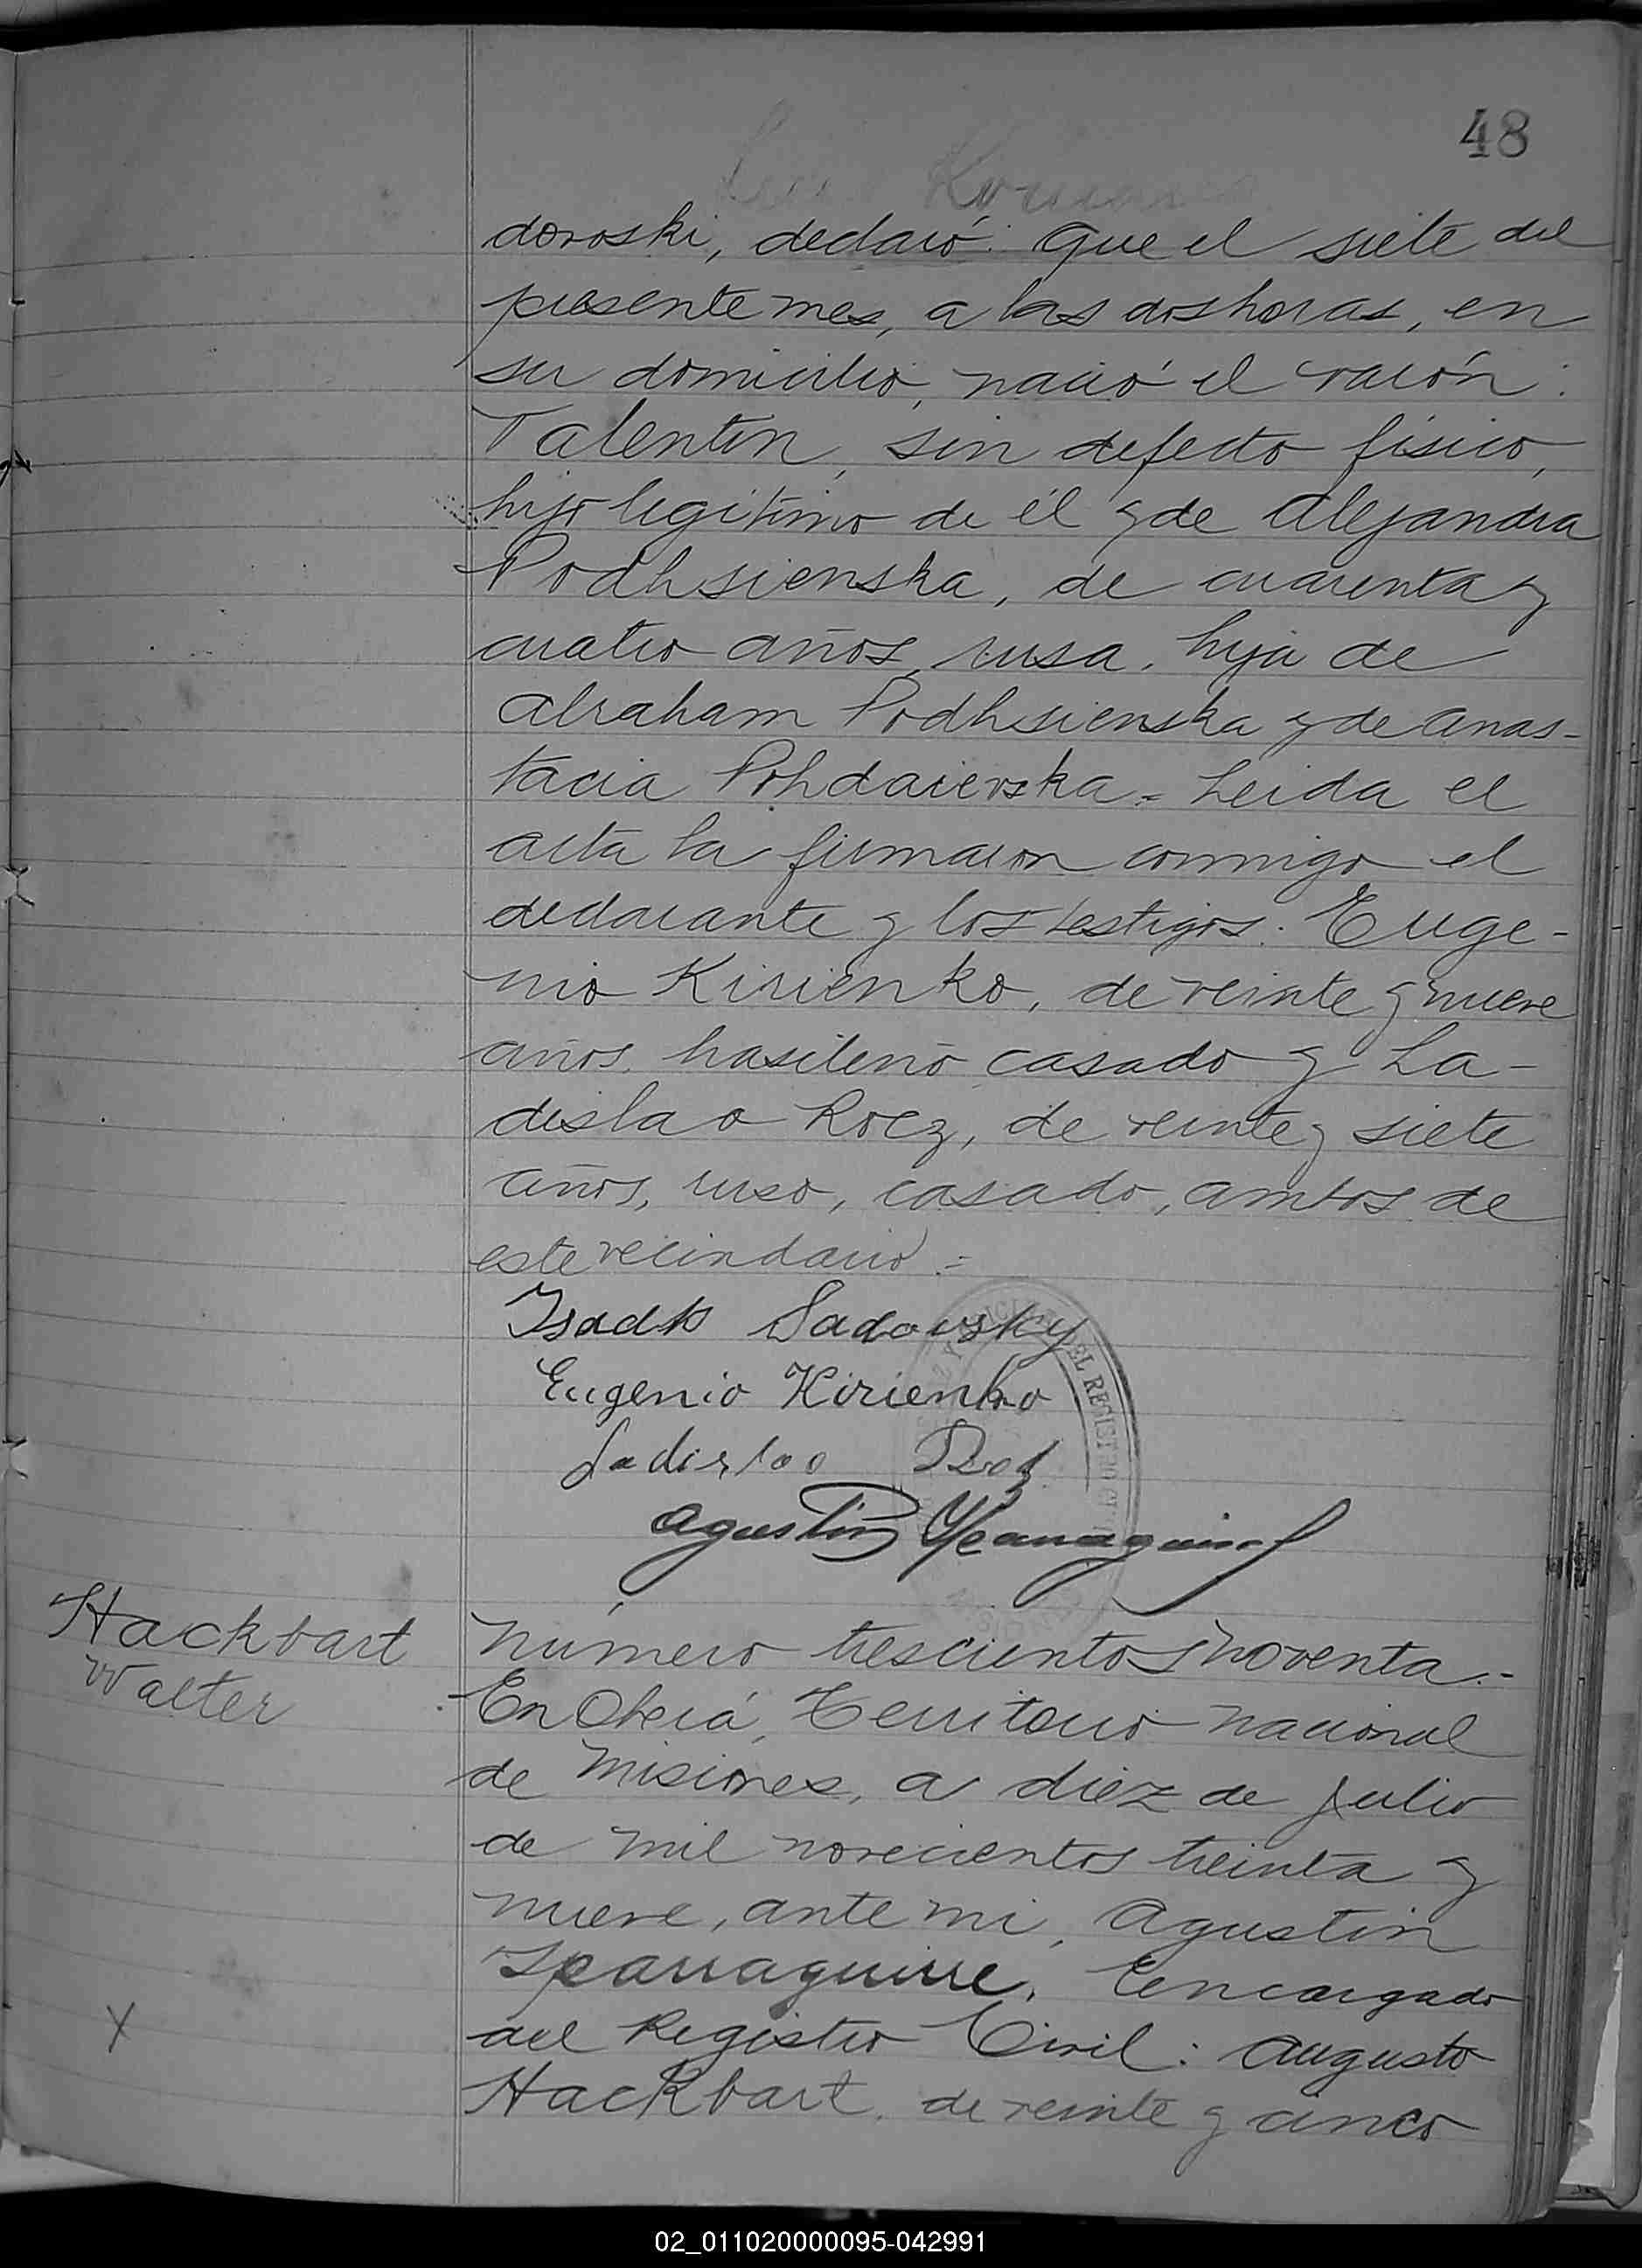 48
dovoski, declaró: Que el siete del
presente mes, a las dos horas, en
su domicilio, nació el varón:
Valentin, sin defecto físico,
hijo legítimo de él y de Alejandra
Podhsienska, de cuarenta y
cuatro años, rusa, hija de
Abraham Podhsienska y de Anas-
tacia Pohdaievska.= Leida el
acta la firmaron conmigo el
declarante y los testigos: Euge-
nio Kirienko, de veinte y nueve
años, brasileño casado y La-
dislao Rocz, de veinte y siete
años, ruso, casado, ambos de
este vecindario.=
Isadk Sadowsky
Eugenio Kirienko
Ladislao
Agustin Yparraguirre
DEL REGISTRO CIVIL
Hackbart
Walter
Número trescientos noventa.-
En Oberá, Territorio Nacional
de Misiones, a diez de Julio
de mil novecientos treinta y
nueve, ante mi, Agustin
Yparraguirre, Encargado
del Registro Civil: Augusto
Hackbart, de veinte y cinco
X
02_011020000095-042991